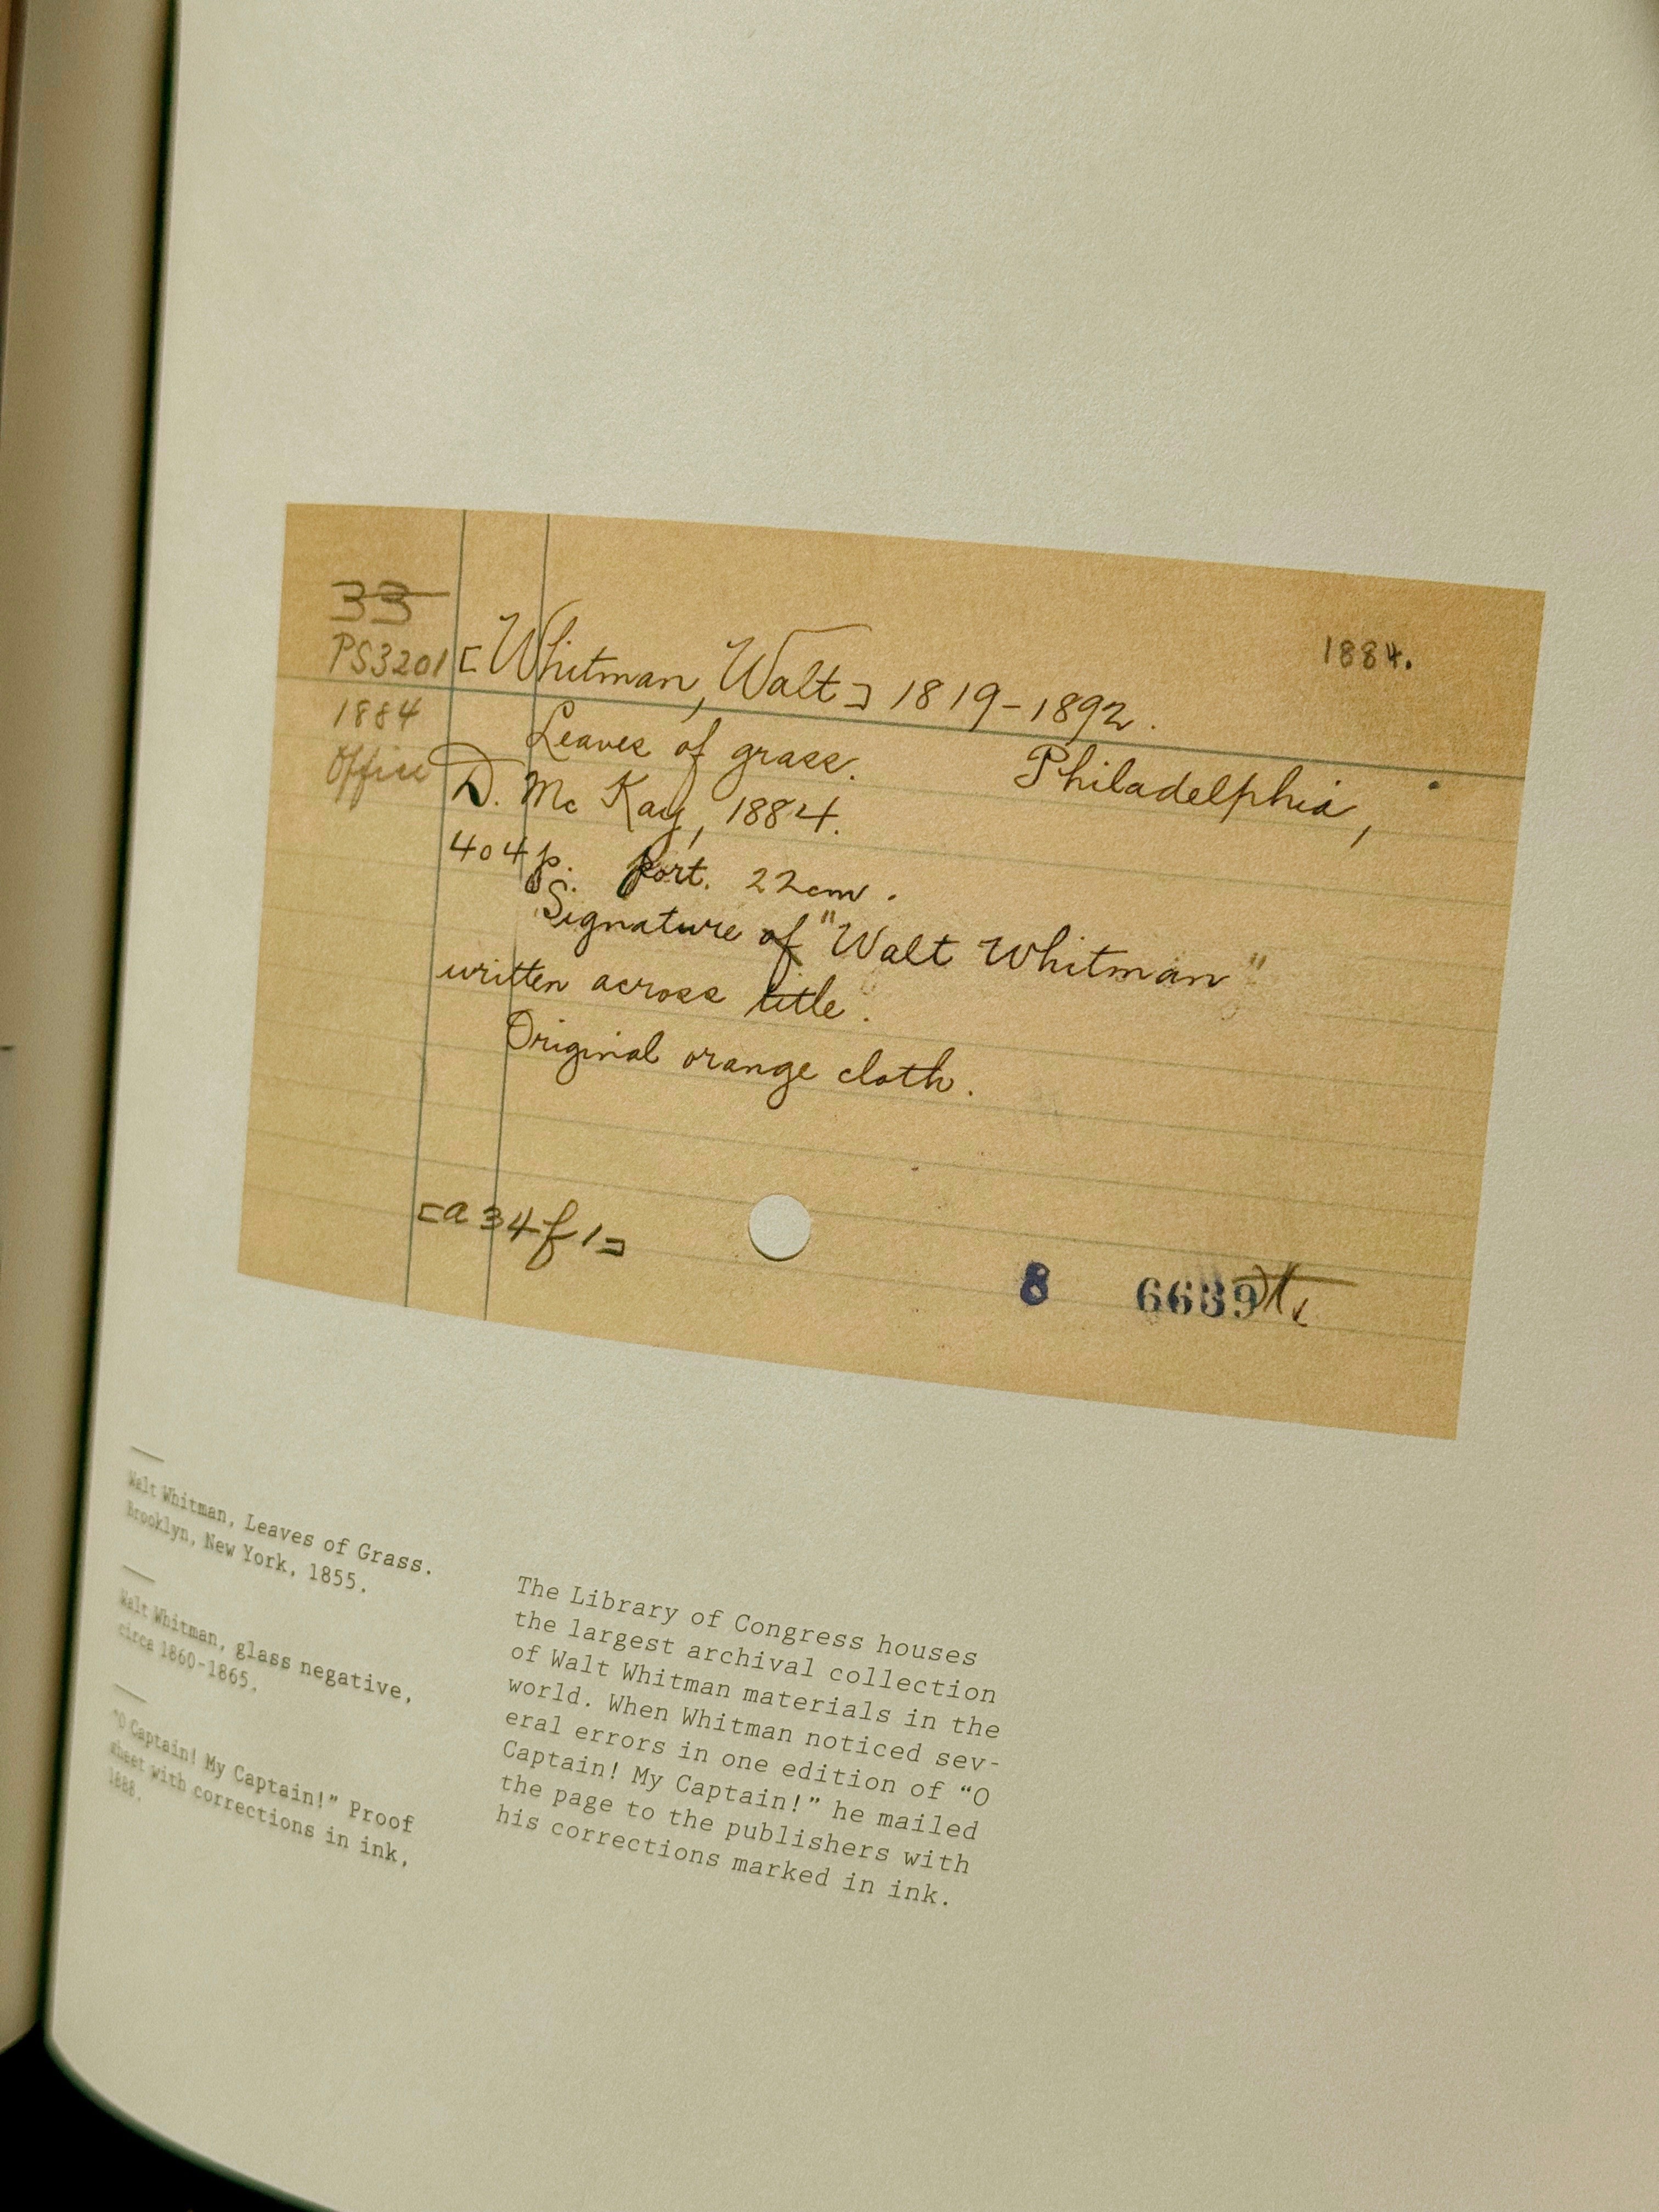 33
PS3201
1884
Office
1884.
[Whitman, Walt] 1819-1892.
Leaves of grass. Philadelphia,
D. McKay, 1884.
404 p. port. 22cm.
Signature of "Walt Whitman"
written across title.
Original orange cloth.
[a34f1]
8 6639
Walt Whitman, Leaves of Grass.
Brooklyn, New York, 1855.
Walt Whitman, glass negative,
circa 1860-1865.
"O Captain! My Captain!" Proof
sheet with corrections in ink,
1888.
The Library of Congress houses
the largest archival collection
of Walt Whitman materials in the
world. When Whitman noticed sev-
eral errors in one edition of “O
Captain! My Captain!” he mailed
the page to the publishers with
his corrections marked in ink.